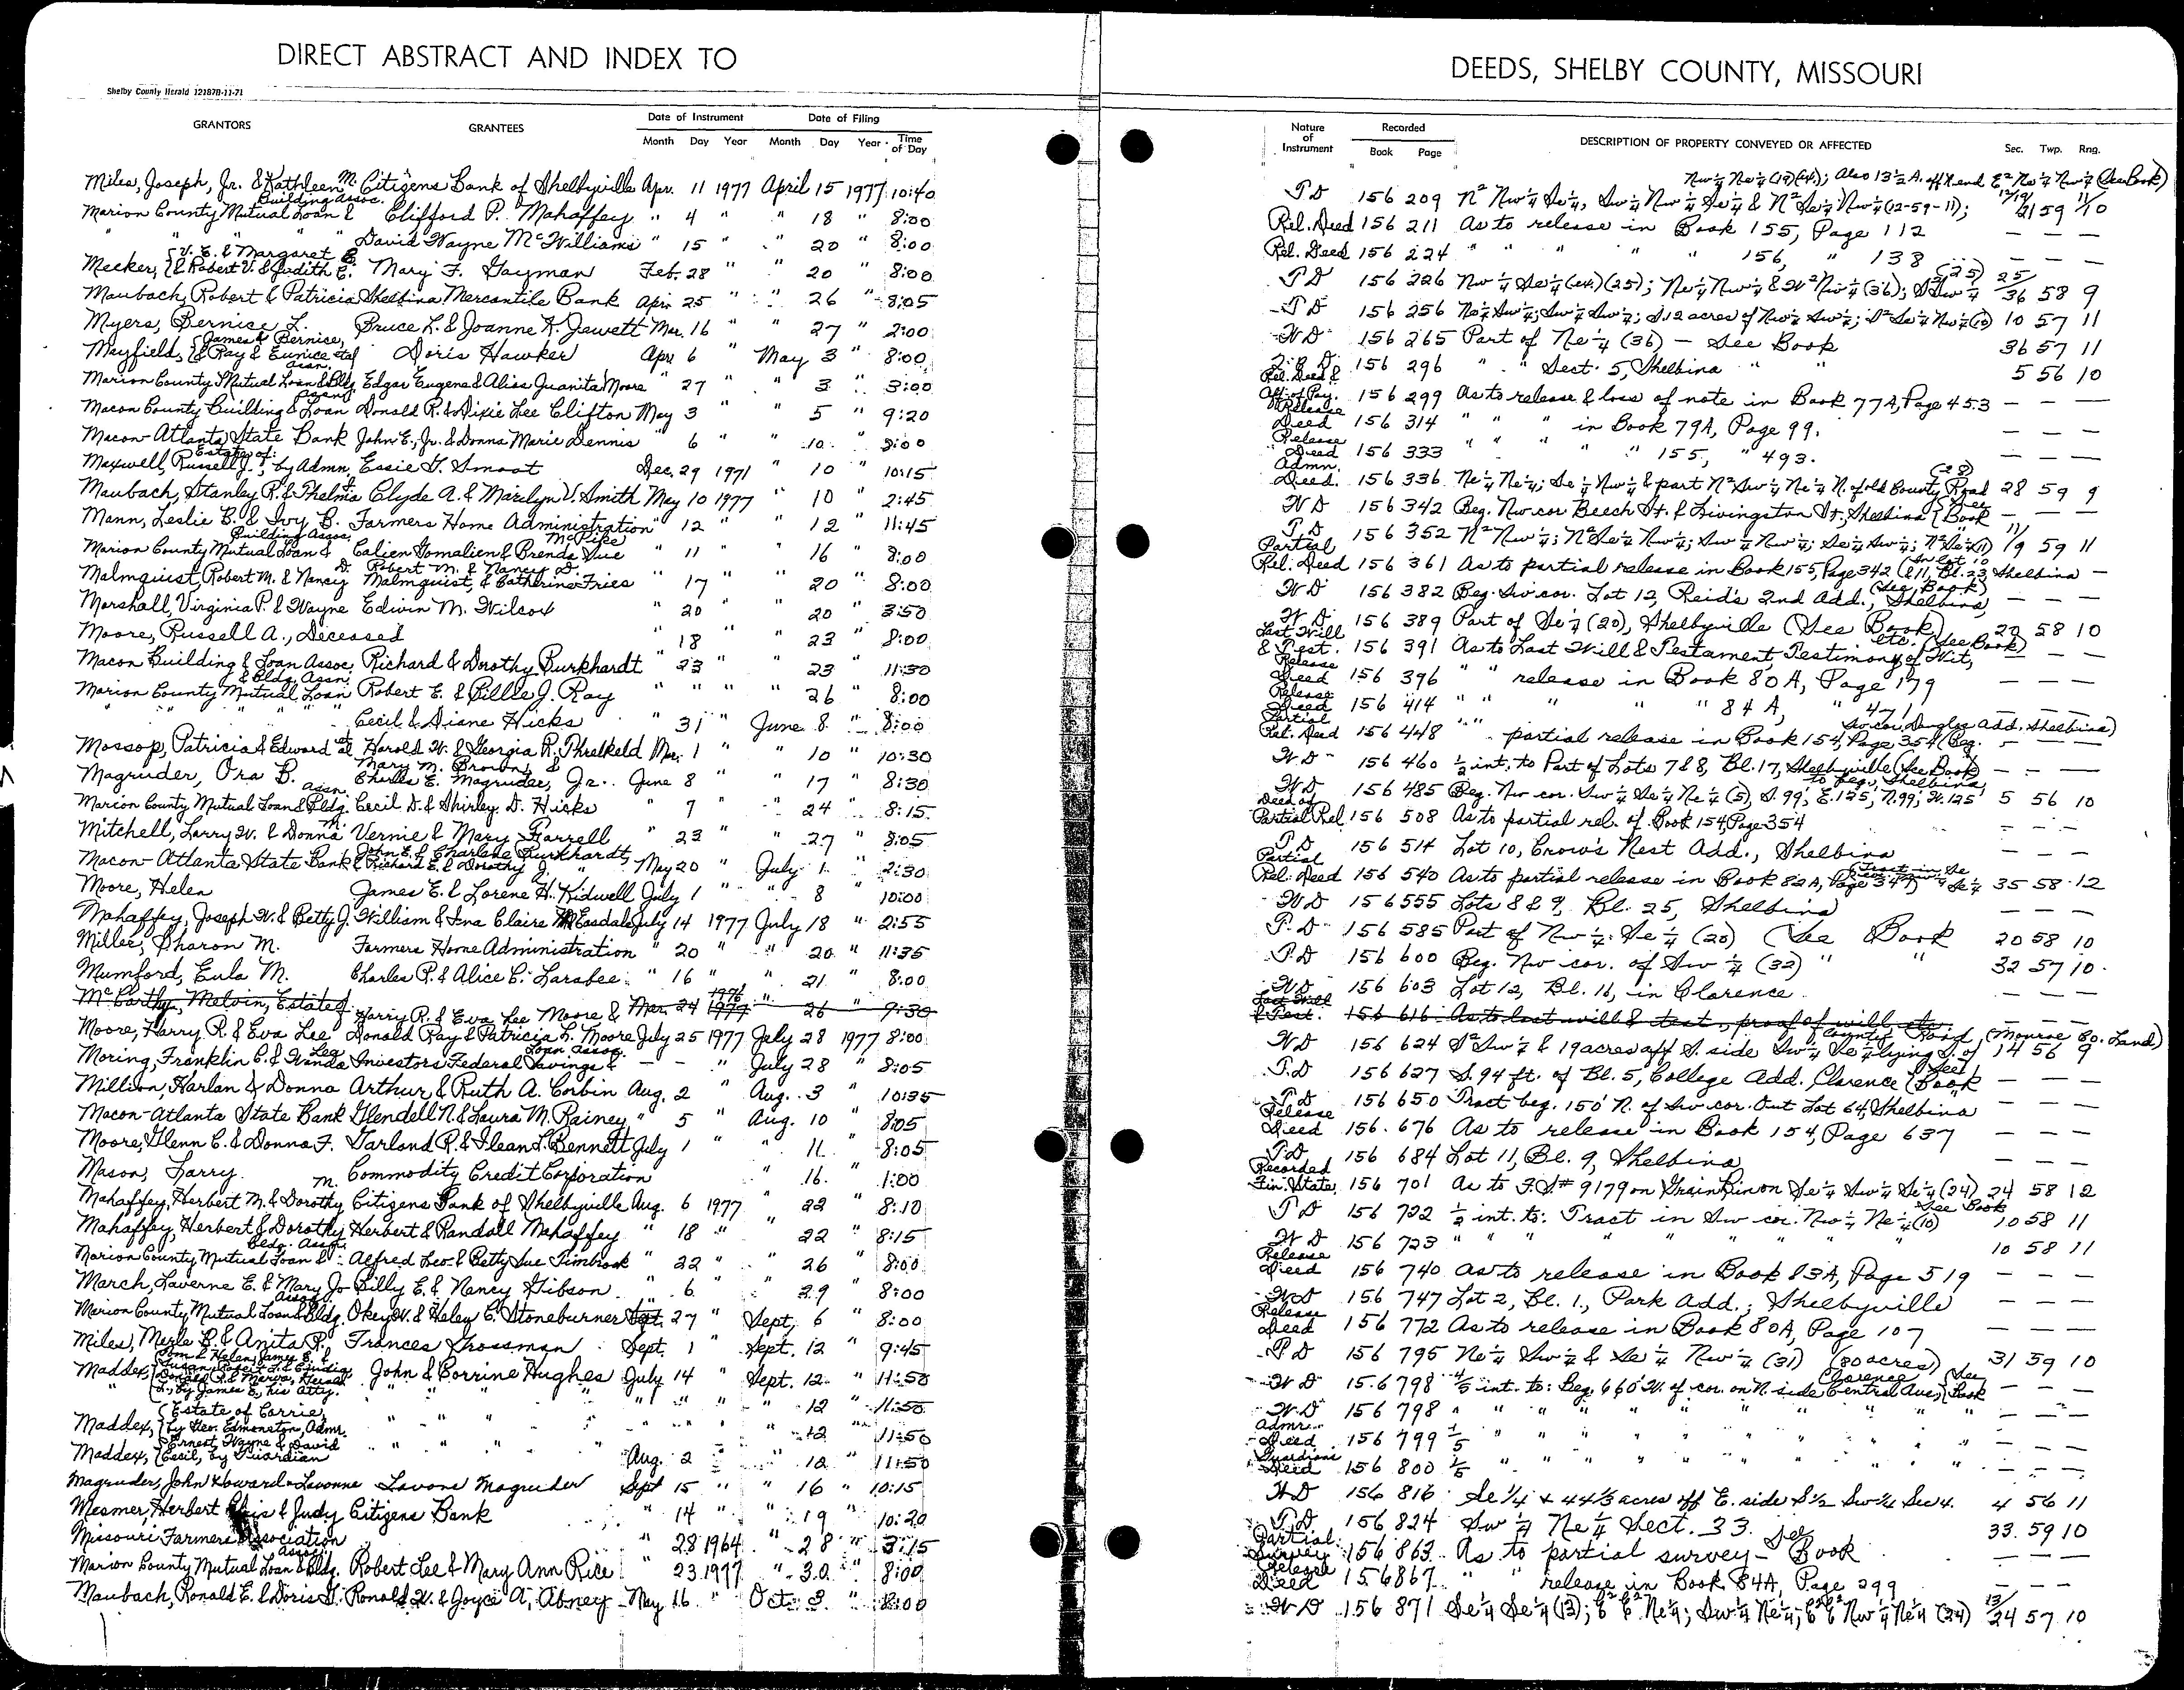 DIRECT ABSTRACT AND INDEX TO
Shelby County Herald 121878-11-71
GRANTORS GRANTEES Date of Instrument Date of Filing
Month Day Year Month Day Year Time of Day
Miles, Joseph, Jr. & Kathleen M. Citizens Bank of Shelbyville Apr. 11 1977 April 15 1977 10:40
Building Assoc.
Marion County Mutual Loan & Clifford P. Mahaffey " 4 " " 18 " 8:00
" " " " David Wayne McWilliams " 15 " " 20 " 8:00
Meeker, {V. E. & Margaret E. & Robert V. & Judith E. Mary F. Gayman Feb. 28 " " 20 " 8:00
Maubach, Robert & Patricia Shelbina Mercantile Bank Apr. 25 " " 26 " 8:05
Myers, Bernice L. Bruce L. & Joanne K. Jewett Mar. 16 " " 27 " 2:00
Mayfield, {James & Bernice, & Ray & Eunice etal Doris Hawker Apr. 6 " May 3 " 8:00
Marion County Mutual Loan & Bldg. Assn. Edgar Eugene & Alisa Juanita Moore " 27 " " 3 " 3:00
Macon County Building & Loan Assn. Donald R. & Dixie Lee Clifton May 3 " " 5 " 9:20
Macon-Atlanta State Bank John E., Jr. & Donna Marie Dennis " 6 " " 10 " 8:00
Maxwell, Russell J., Estate of: by Admn. Essie G. Smoot Dec. 29 1971 " 10 " 10:15
Maubach, Stanley R. & Thelma J. Clyde A. & Marilyn V. Smith May 10 1977 " 10 " 2:45
Mann, Leslie B. & Ivy B. Farmers Home Administration " 12 " " 12 " 11:45
Building Assoc. McPike
Marion County Mutual Loan & Calien Gomalien & Brenda Sue " 11 " " 16 " 8:00
D. Robert M. & Nancy D.
Malmquist, Robert M. & Nancy Malmquist, & Catherine Fries " 17 " 20 " 8:00
Marshall, Virginia P. & Wayne Edwin M. Wilcox " 20 " 20 " 3:50
Moore, Russell A., Deceased " 18 " " 23 " 8:00
Macon Building & Loan Assoc. Richard & Dorothy Burkhardt " 23 " " 23 " 11:30
& Bldg. Assn.
Marion County Mutual Loan Robert E. & Billie J. Ray " " " " 26 " 8:00
" " " " Cecil & Diane Hicks " 31 " June 8 " 8:00
Mossop, Patricia & Edward etal Harold W. & Georgia R. Threlkeld Mar. 1 " " 10 " 10:30
Mary M. Brown, &
Magruder, Ora B. Charles E. Magruder, Jr. June 8 " " 17 " 8:30
Marion County Mutual Loan & Bldg. Assn. Cecil D. & Shirley D. Hicks " 7 " 24 " 8:15
Mitchell, Larry W. & Donna M. Vernie & Mary Farrell " 23 " " 27 " 8:05
John E. & Charlene Burkhardt,
Macon-Atlanta State Bank & Richard E. & Dorothy J. " May 20 " July 1 " 2:30
Moore, Helen James E. & Lorene H. Kidwell July 1 " " 8 " 10:00
Mahaffey, Joseph W. & Betty J. William & Ina Claire McEasdale July 14 1977 July 18 " 2:55
Miller, Sharon M. Farmers Home Administration " 20 " " 20 " 11:35
Mumford, Eula M. Charles P. & Alice C. Larabee " 16 " " 21 " 8:00
McCarthy, Melvin, Estate of Mar. 24 1976 1977 " 26 " 9:30
Harry R. & Eva Lee Moore &
Moore, Harry R. & Eva Lee Donald Ray & Patricia L. Moore July 25 1977 July 28 1977 8:00
Loan Assoc.
Moring, Franklin C. & Wanda Lea Investors Federal Savings & — — " July 28 " 8:05
Million, Harlan & Donna Arthur & Ruth A. Corbin Aug. 2 " Aug. 3 " 10:35
Macon-Atlanta State Bank Glendell N. & Laura M. Rainey " 5 " Aug. 10 " 8:05
Moore, Glenn C. & Donna F. Garland R. & Ilean L. Bennett July 1 " " 11 " 8:05
Mason, Larry Commodity Credit Corporation " 16 " 1:00
Mahaffey, Herbert M. & Dorothy M. Citizens Bank of Shelbyville Aug. 6 1977 " 22 " 8:10
Mahaffey, Herbert & Dorothy Herbert & Randall Mahaffey " 18 " " 22 " 8:15
Bldg. Assn.
Marion County Mutual Loan & Alfred Leo & Betty Sue Timbrook " 22 " " 26 " 8:00
March, Laverne E. & Mary Jo Billy E. & Nancy Gibson " 6 " 29 " 8:00
Marion County Mutual Loan & Bldg. Assoc. Okey W. & Helen C. Stoneburner 27 " Sept. 6 " 8:00
Miles, Merle B. & Anita R. Frances Grossman Sept. 1 " Sept. 12 " 9:45
Maddex, John & Corrine Hughes July 14 " Sept. 12 " 11:50
" by James E., his Atty. " " " " " " " 12 " 11:50
Maddex, {Estate of Carrie, by Geo. Edmonston, Admr. " " " " " " 12 " 11:50
Maddex, {Ernest, Wayne & David Cecil, by Guardian " " " " Aug. 2 " 12 " 11:50
Magruder, John Howard & Lavonne Lavone Magruder Sept 15 " " 16 " 10:15
Mesmer, Herbert & Judy Citizens Bank " 14 " " 19 " 10:20
Missouri Farmers Association " 28 1964 " 28 " 3:15
Marion County Mutual Loan & Bldg. Assoc. Robert Lee & Mary Ann Rice " 23 1977 " 30 " 8:00
Maubach, Ronald E. & Doris G. Ronald W. & Joyce A. Abney May 16 " Oct. 3 " 8:00
DEEDS, SHELBY COUNTY, MISSOURI
Nature of Instrument Recorded Book Page DESCRIPTION OF PROPERTY CONVEYED OR AFFECTED Sec. Twp. Rng.
Nw¼ Ne¼ (19)(ex.); Also 13½ A. off N. end E² Nw¼ Nw¼ (See Book)
TD 156 209 N² Nw¼ Se¼, Sw¼ Nw¼ Se¼ & N² Se¼ Nw¼ (12-59-11); 12/19 59 11/10
Rel. Deed 156 211 As to release in Book 155, Page 112 — — —
Rel. Deed 156 224 " " " " " 156, " 138 — — —
TD 156 226 Nw¼ Se¼ (ex.)(25); Ne¼ Nw¼ & W² Nw¼ (36); Sw¼ (25) 25/36 58 9
TD 156 256 Ne¼ Sw¼; Sw¼ Sw¼; S 12 acres of Nw¼ Sw¼; S² Se¼ Nw¼ (10) 10 57 11
WD 156 265 Part of Ne¼ (36) — See Book 36 57 11
Q.C.D. 156 296 " " Sect. 5, Shelbina " " 5 56 10
Rel. Deed & Aff. of Pay. 156 299 As to release & loss of note in Book 77A, Page 453 — — —
Release Deed 156 314 " " " in Book 79A, Page 99. — — —
Release Deed 156 333 " " " " 155, " 493. — — —
Admn. Deed 156 336 Ne¼ Ne¼; Se¼ Nw¼ & part N² Sw¼ Ne¼ N. of old County Road (28) 28 59 9
WD 156 342 Beg. Nw cor. Beech St. & Livingston St., Shelbina {See Book — — —
TD 156 352 N² Nw¼; N² Se¼ Nw¼; Sw¼ Nw¼; Se¼ Sw¼; N² Se¼ (11) 11/19 59 11
Partial Rel. Deed 156 361 As to partial release in Book 155, Page 342 (In Lot 10 & 11, Bl. 23, Shelbina —
WD 156 382 Beg. Sw cor. Lot 12, Reid's 2nd Add., Shelbina (See Book) — — —
WD 156 389 Part of Se¼ (20), Shelbyville (See Book) 20 58 10
Last Will & Test. 156 391 As to Last Will & Testament, Testimony of Wit, etc. (See Book) — — —
Release Deed 156 396 " " release in Book 80A, Page 179 — — —
Release Deed 156 414 " " " " " 84A, " 471 — — —
Partial Rel. Deed 156 448 " " partial release in Book 154, Page 354 (Beg. Sw cor. Douglas Add. Shelbina)
WD 156 460 ½ int. to Part of Lots 7 & 8, Bl. 17, Shelbyville (See Book) — — —
WD 156 485 Beg. Nw cor. Sw¼ Se¼ Ne¼ (5), S. 99', E. 125', N. 99', W. 125' to beg., Shelbina 5 56 10
Deed of Partial Rel. 156 508 As to partial rel. of Book 154, Page 354 — — —
TD 156 514 Lot 10, Crow's Nest Add., Shelbina — — —
Partial Rel. Deed 156 540 As to partial release in Book 82A, Page 347 (Tract in Se Se¼ 35 58 12
WD 156 555 Lots 8 & 9, Bl. 25, Shelbina — — —
T.D 156 585 Part of Nw¼ Se¼ (20) (See Book 20 58 10
T.D 156 600 Beg. Nw cor. of Sw¼ (32) " " 32 57 10
WD 156 603 Lot 12, Bl. 16, in Clarence — — —
Last Will & Test. 156 616 As to last will & test., proof of will, etc.
WD 156 624 S² Sw¼ & 19 acres off S. side Sw¼ Se¼ lying S. of County Road, (Monroe Co. Land) 14 56 9
T.D 156 627 S. 94 ft. of Bl. 5, College Add. Clarence (See Book — — —
TD 156 650 Tract beg. 150' N. of Sw cor. Out Lot 64, Shelbina — — —
Release Deed 156 676 As to release in Book 154, Page 637 — — —
TD 156 684 Lot 11, Bl. 9, Shelbina — — —
Recorded Fin. State. 156 701 As to F.S.# 9179 on Grain Bin on Se¼ Sw¼ Se¼ (24) 24 58 12
TD 156 722 ½ int. to: Tract in Sw cor. Nw¼ Ne¼ (10) See Book 10 58 11
WD 156 723 " " " " " " " " 10 58 11
Release Deed 156 740 As to release in Book 83A, Page 519 — — —
WD 156 747 Lot 2, Bl. 1., Park Add., Shelbyville — — —
Release Deed 156 772 As to release in Book 80A, Page 107 — — —
TD 156 795 Ne¼ Sw¼ & Se¼ Nw¼ (31) (80 acres) 31 59 10
WD 156 798 ⅘ int. to: Beg. 660' W. of cor. on N. side Central Ave., Clarence (See Book — — —
WD 156 798 " " " " " " " " — — —
Admr. Deed 156 799 ⅕ " " " " " " " — — —
Guardians Deed 156 800 ⅕ " " " " " " " — — —
WD 156 816 Se 1/4 & 44⅓ acres off E. side S½ Sw¼ Sec 4. 4 56 11
TD 156 824 Sw¼ Ne¼ Sect. 33. 33 59 10
Partial Survey 156 863 As to partial survey — See Book — — —
Release Deed 156 867 " " release in Book 84A, Page 299 — — —
WD 156 871 Se¼ Se¼ (13); E² E² Ne¼; Sw¼ Ne¼; E² E² Nw¼ Ne¼ (24) 13/24 57 10